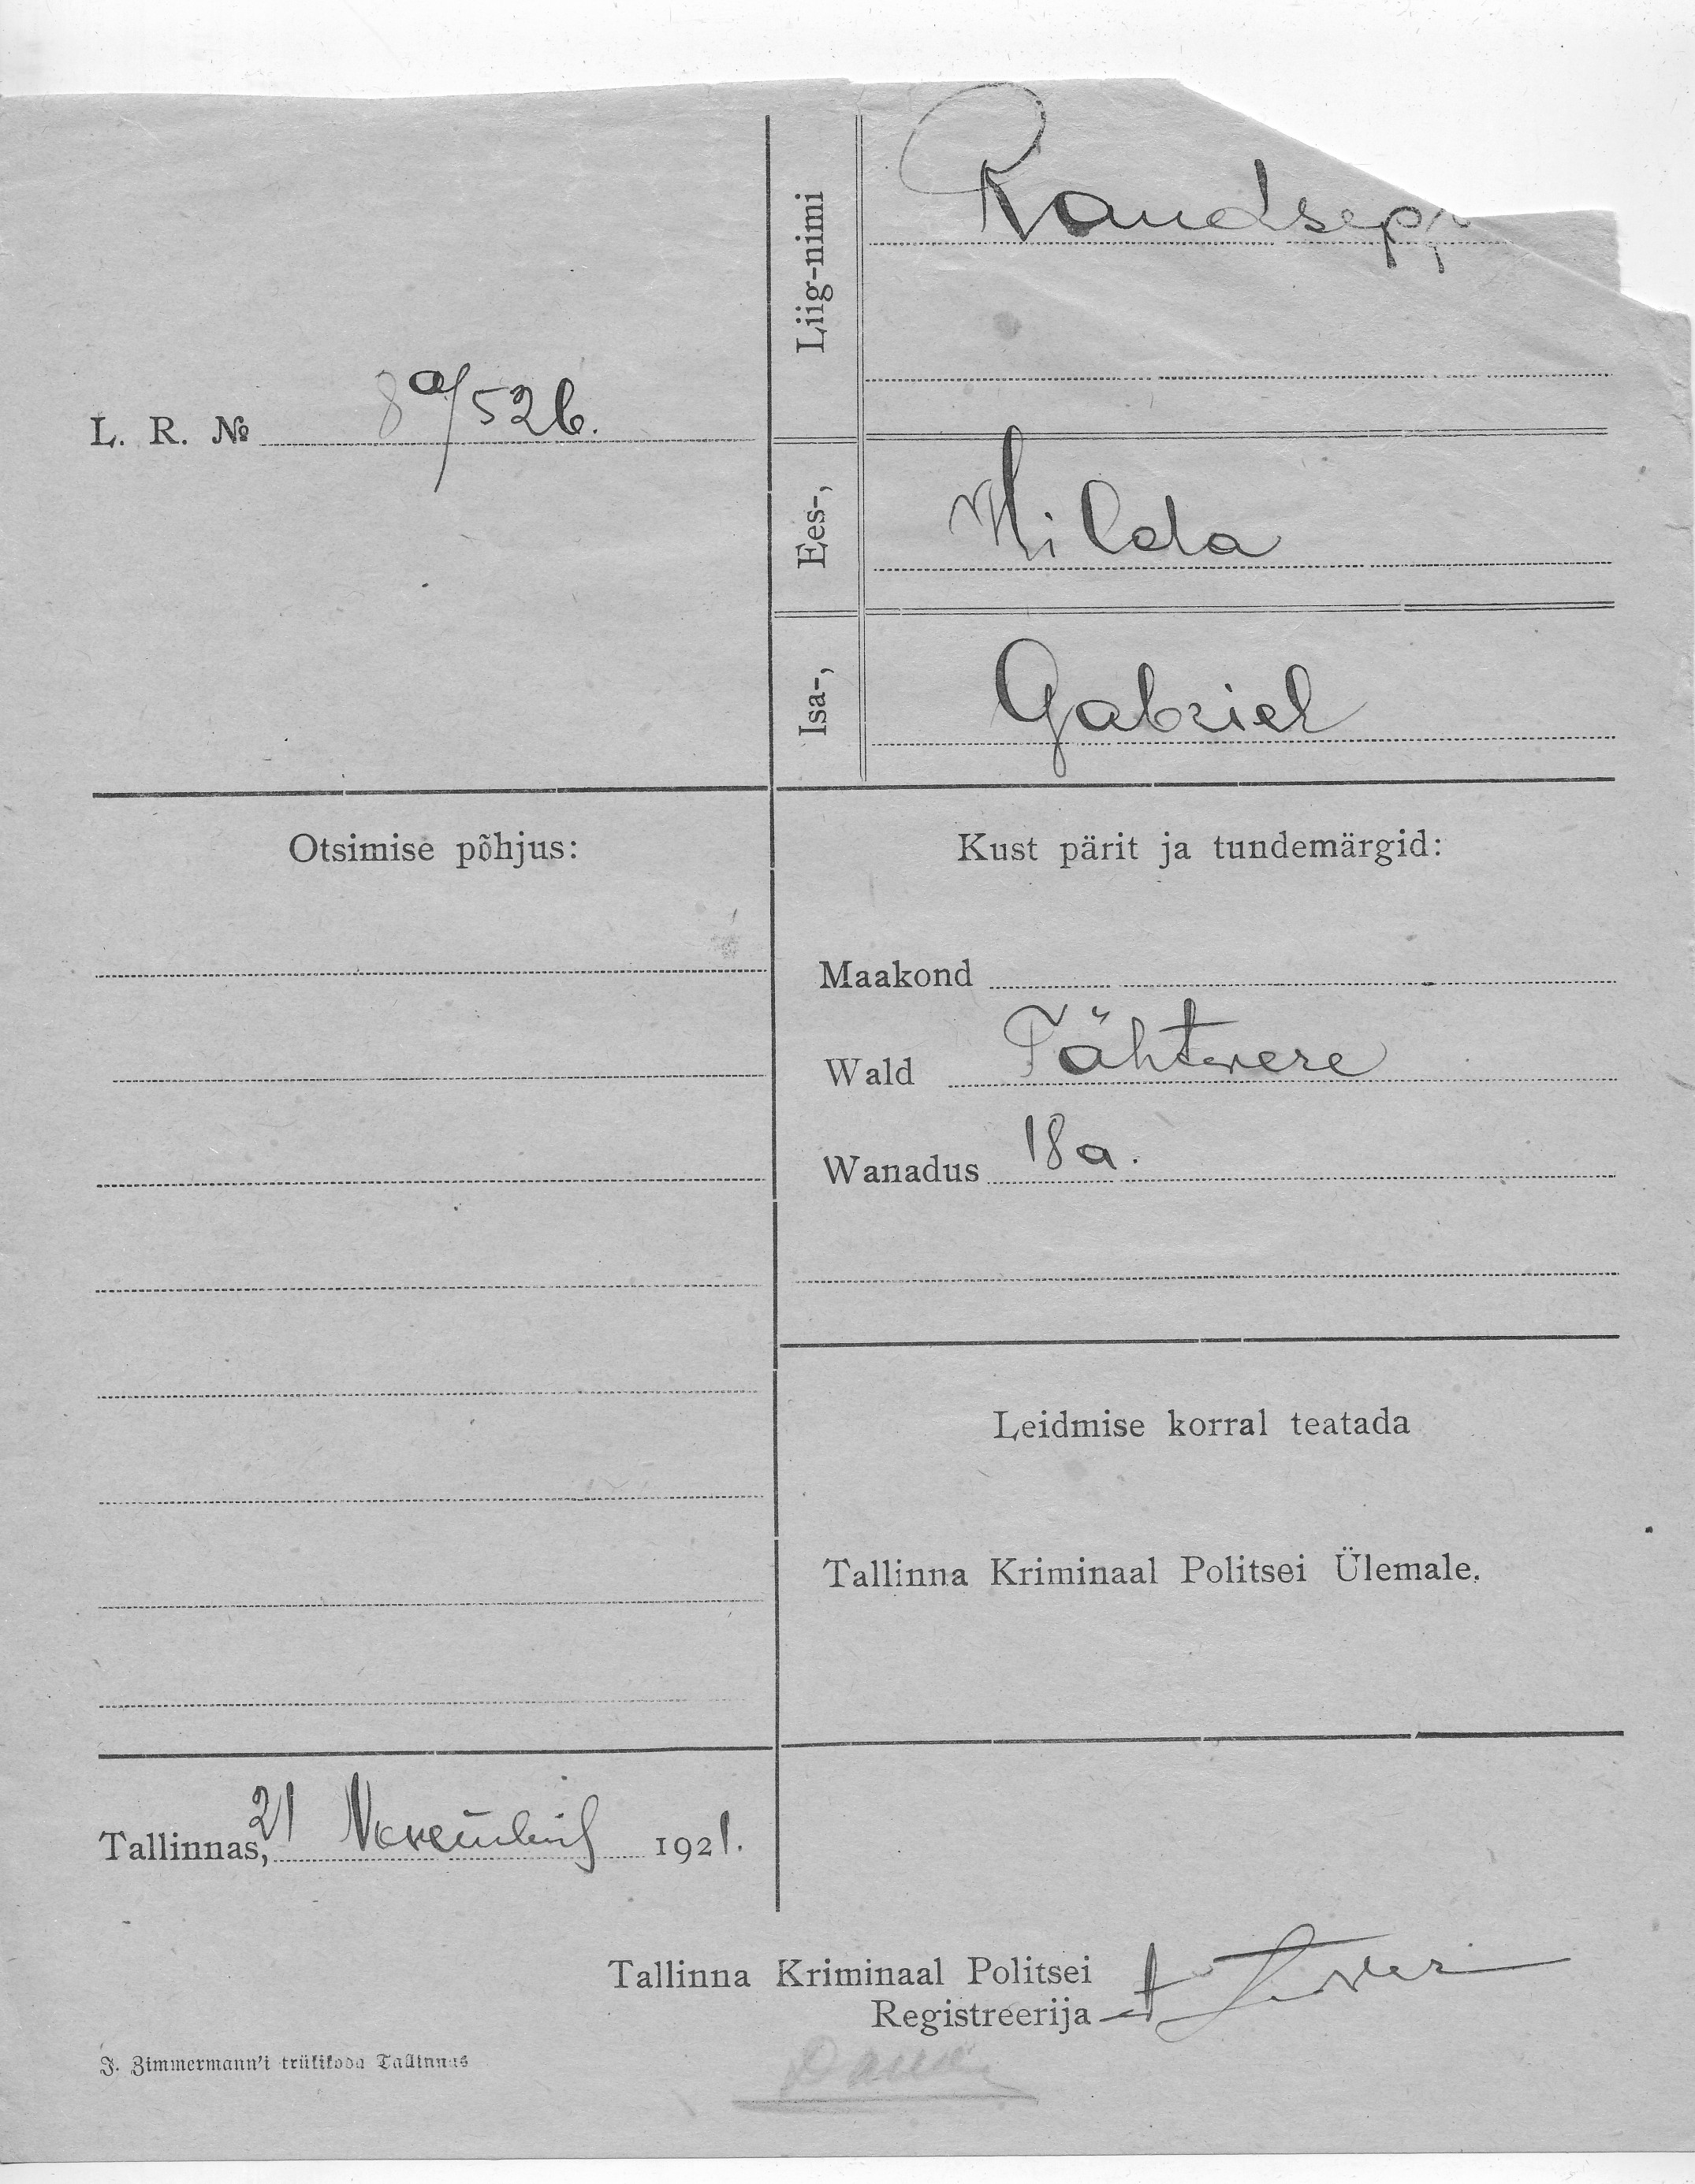 Liig-nimi Raudsepp
L. R. № 8a/526.
Ees-, Hilda
Isa-, Gabriel
Otsimise põhjus:
Kust pärit ja tundemärgid:
Maakond
Wald Tähtvere
Wanadus 18 a.
Leidmise korral teatada
Tallinna Kriminaal Politsei Ülemale.
Tallinnas, 21 Novembril 1921.
Tallinna Kriminaal Politsei
Registreerija
J. Zimmermann'i trükikoda Tallinnas